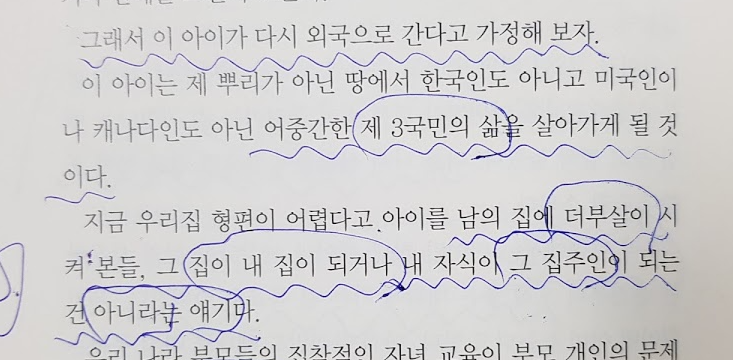 그래서 이 아이가 다시 외국으로 간다고 가정해 보자.
이 아이는 제 뿌리가 아닌 땅에서 한국인도 아니고 미국인이
나 캐나다인도 아닌 어중간한 제 3국민의 삶을 살아가게 될 것
이다.
지금 우리집 형편이 어렵다고 아이를 남의 집에 더부살이 시
켜 본들, 그 집이 내 집이 되거나 내 자식이 그 집주인이 되는
건 아니라는 얘기다.
우리 나라 부모들의 집착적인 자녀 교육이 부모 개인의 문제